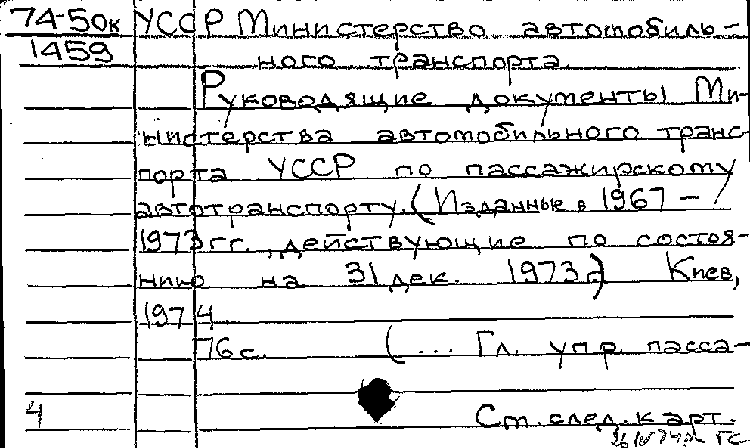 74-50к УССР Министерство автомобиль-
1459 ного транспорта.
Руководящие документы Ми-
нистерства автомобильного транс-
порта УССР по пассажирскому
автотранспорту. (Изданные в 1967 -
1973 гг., действующие по состоя-
нию на 31 дек. 1973 г.) Киев,
1974
76 с. (... Гл. упр. пасса-
4 См. след. карт.
ГС